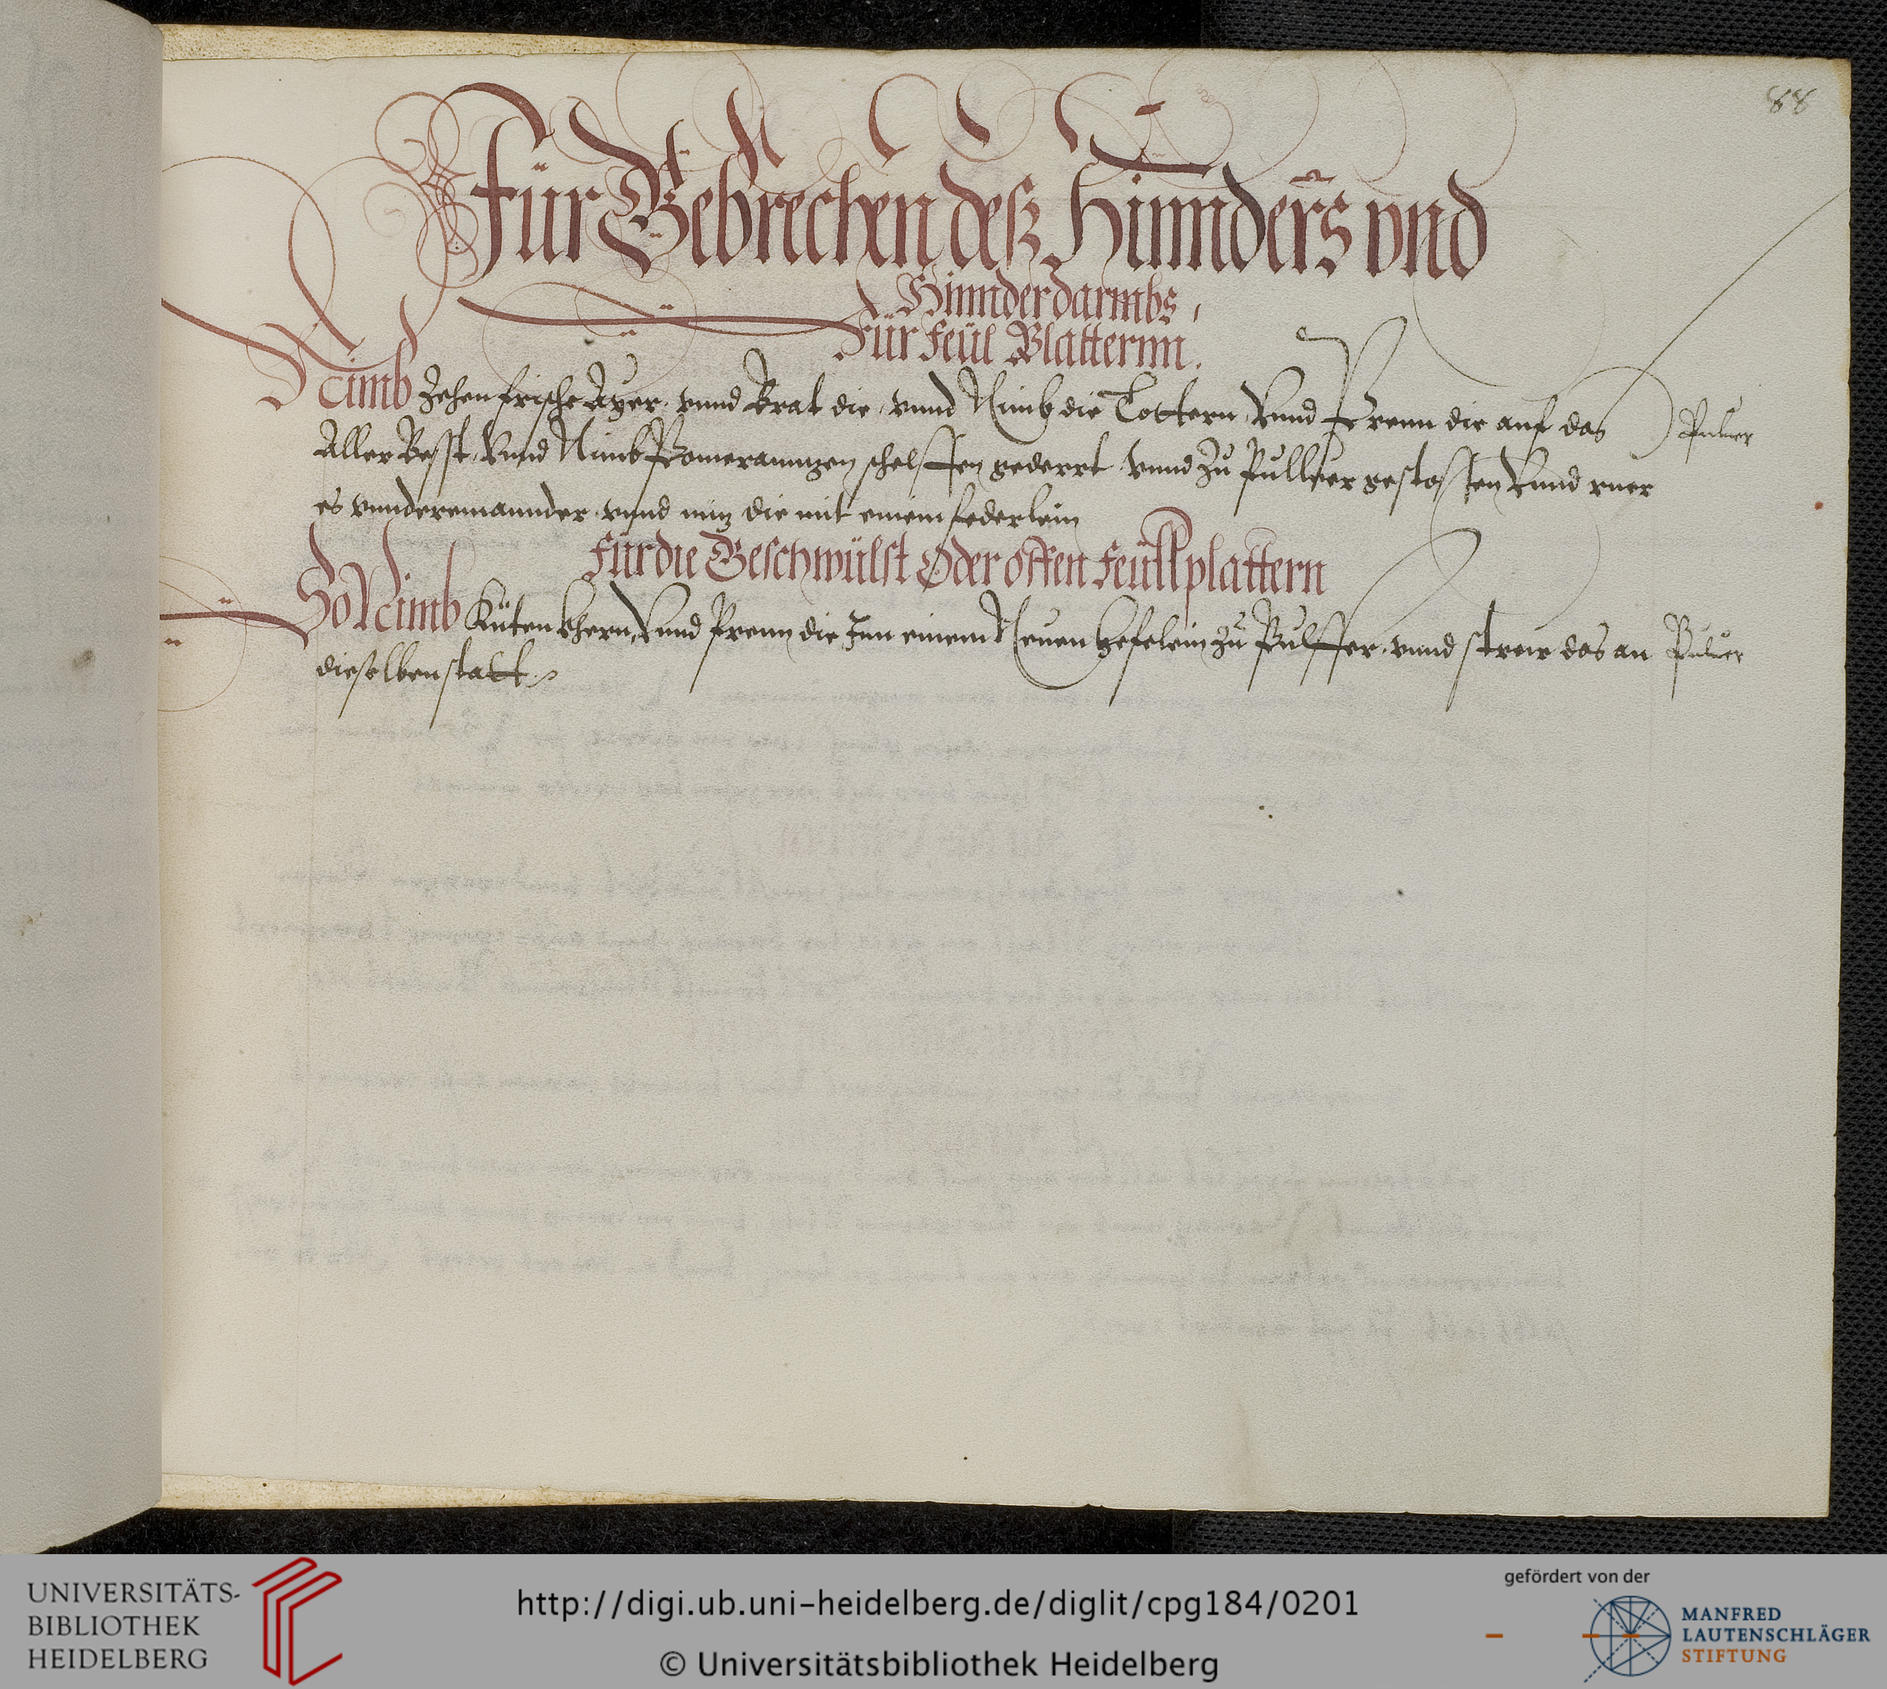 88
Für Gebrechen deß Hinnders vnd
Hinnderdarmbs,
Für Feül Blatternn.
Nimb Zehen frische Ayer, vnnd Brat die, vnnd Nimb die Tottern, Vnnd Prenn die auf das Puluer
Aller Besst, Vnnd Nimb Pomeranntzen schelffen gederrt, vnnd Zu Pullffer gestossen Vnnd ruer
es vnndereinannder, vnnd nütz die mit einem federlein
Für die Geschwülst Oder offen Feüllplattern
So Nimb Küten khern, Vnnd Prenn die Inn einem Neuen hefelein Zu Pulffer, vnnd strew das an Puluer
dieselben statt
UNIVERSITÄTS-
BIBLIOTHEK
HEIDELBERG
http://digi.ub.uni-heidelberg.de/diglit/cpg184/0201
© Universitätsbibliothek Heidelberg
gefördert von der
MANFRED
LAUTENSCHLÄGER
STIFTUNG